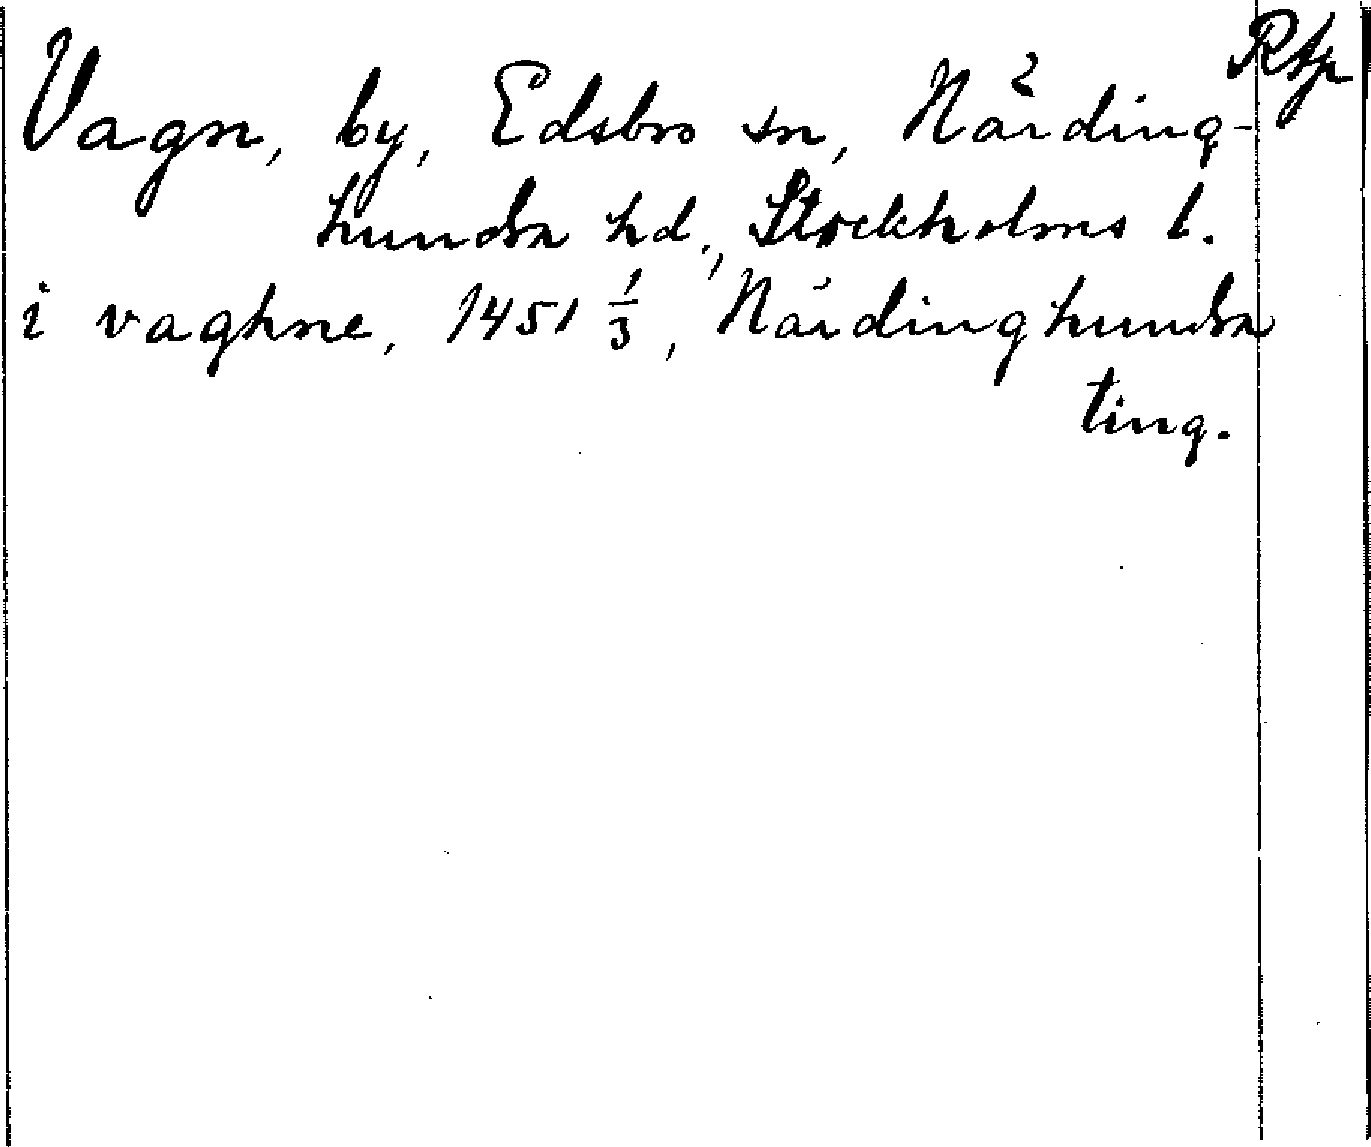 RAp
Vagn, by, Edsbro sn, Närding-
hundra hd., Stockholms l.
i vaghne, 1451 1/3, Närdinghundra
ting.